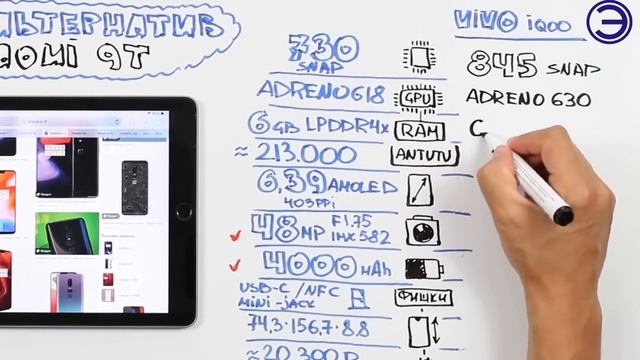 АЛЬТЕРНАТИВ
ЯОМI 9Т
730
SNAP
ADRENO 618
GPU
6GB LPDDR4x
RAM
≈ 213.000
ANTUTU
6,39 AMOLED
403PPi
48MP F1,75
IMX582
4000mAh
USB-C / NFC
MiNi-JACK
ФИШКИ
74,3·156,7·8.8
≈ 20.300Р
ViVO iQOO
845 SNAP
ADRENO 630
Э